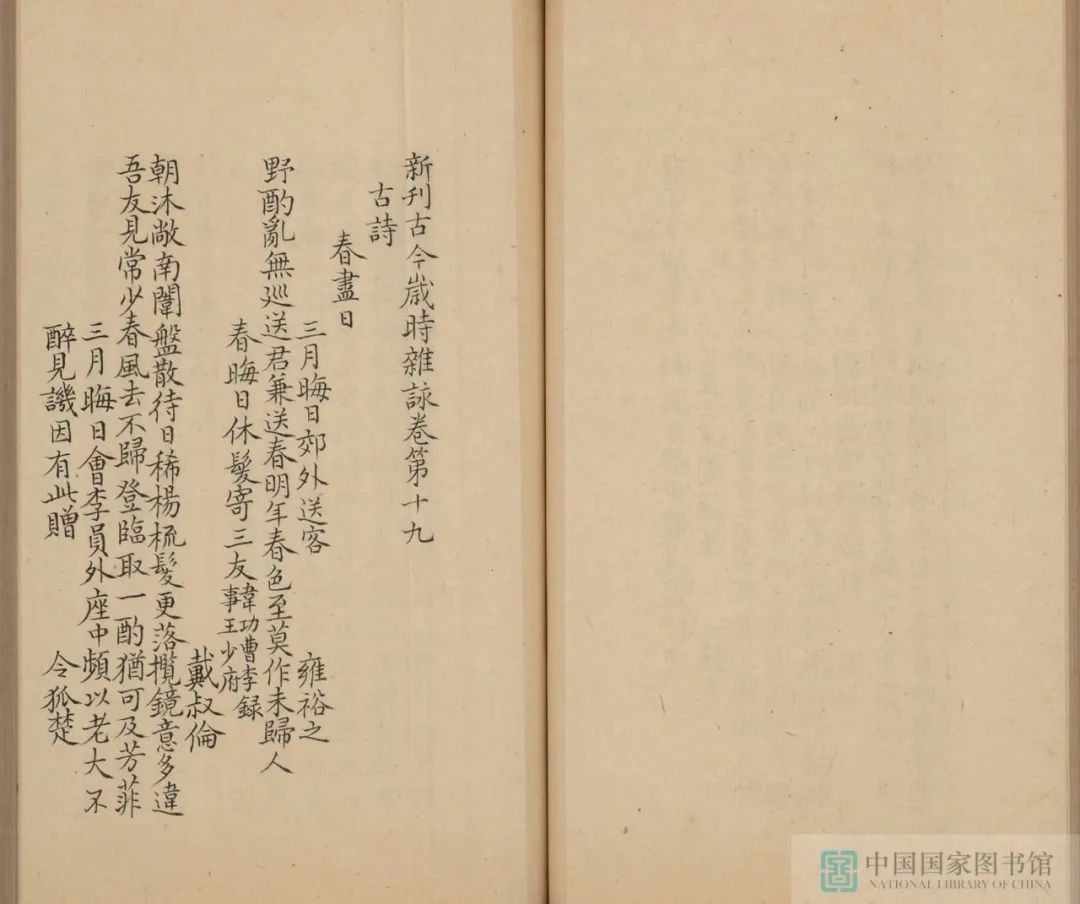 新刊古今歲時雜詠卷第十九
古詩
春盡日
三月晦日郊外送客 雍裕之
野酌亂無巡送君兼送春明年春色至莫作未歸人
春晦日休髮寄三友韋功曹李録事王少府
戴叔倫
朝沐敞南闈盤散待日稀楊梳髮更落攬鏡意多違
吾友見常少春風去不歸登臨取一酌猶可及芳菲
三月晦日會李員外座中頻以老大不
醉見譏因有此贈 令狐楚
中国国家图书馆
NATIONAL LIBRARY OF CHINA